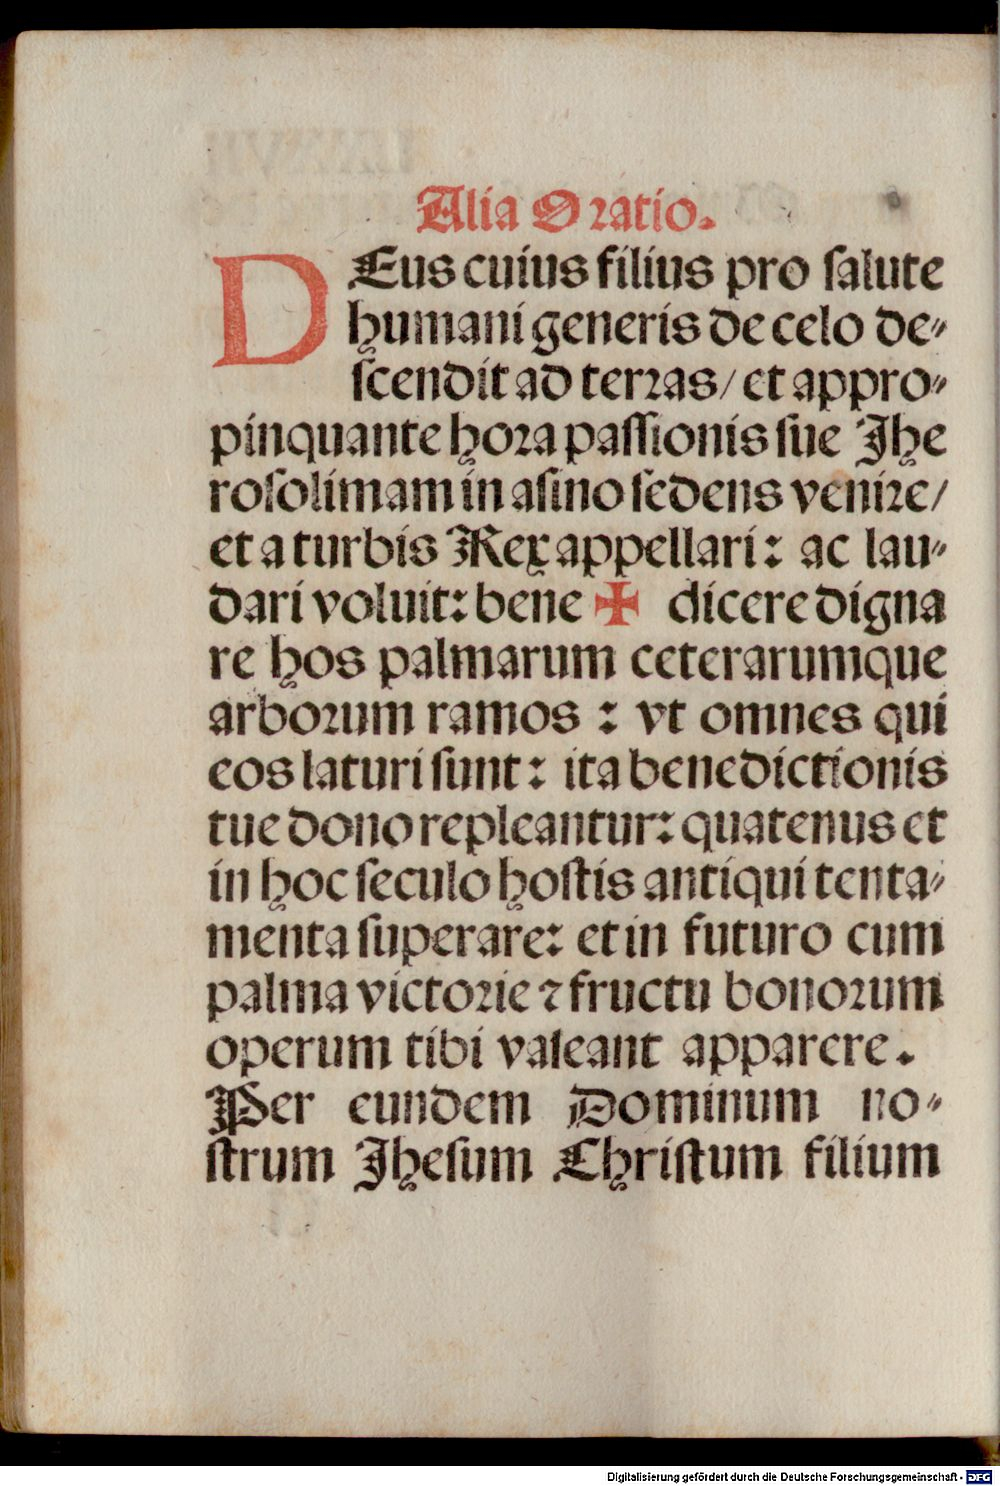 Alia Oratio.
DEus cuius filius pro salute
humani generis de celo de⸗
scendit ad terras/ et appro⸗
pinquante hora passionis sue Jhe
rosolimam in asino sedens venire/
et a turbis Rex appellari: ac lau⸗
dari voluit: bene ✠ dicere digna
re hos palmarum ceterarumque
arborum ramos : vt omnes qui
eos laturi sunt: ita benedictionis
tue dono repleantur: quatenus et
in hoc seculo hostis antiqui tenta⸗
menta superare: et in futuro cum
palma victorie ⁊ fructu bonorum
operum tibi valeant apparere.
Per eundem Dominum no⸗
strum Jhesum Christum filium
Digitalisierung gefördert durch die Deutsche Forschungsgemeinschaft - DFG